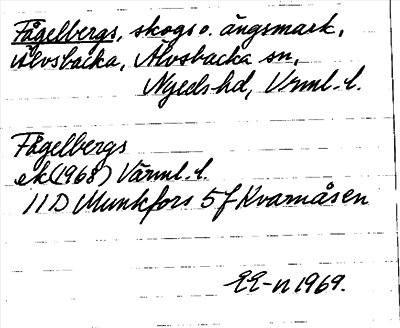 Fågelbergs, skogs o. ängsmark,
Älvsbacka, Älvsbacka sn,
Nyeds hd, Vrml. l.
Fågelbergs
ek (1968) Värml. l.
11D Munkfors 5f Kvarnåsen
EE-n 1969.